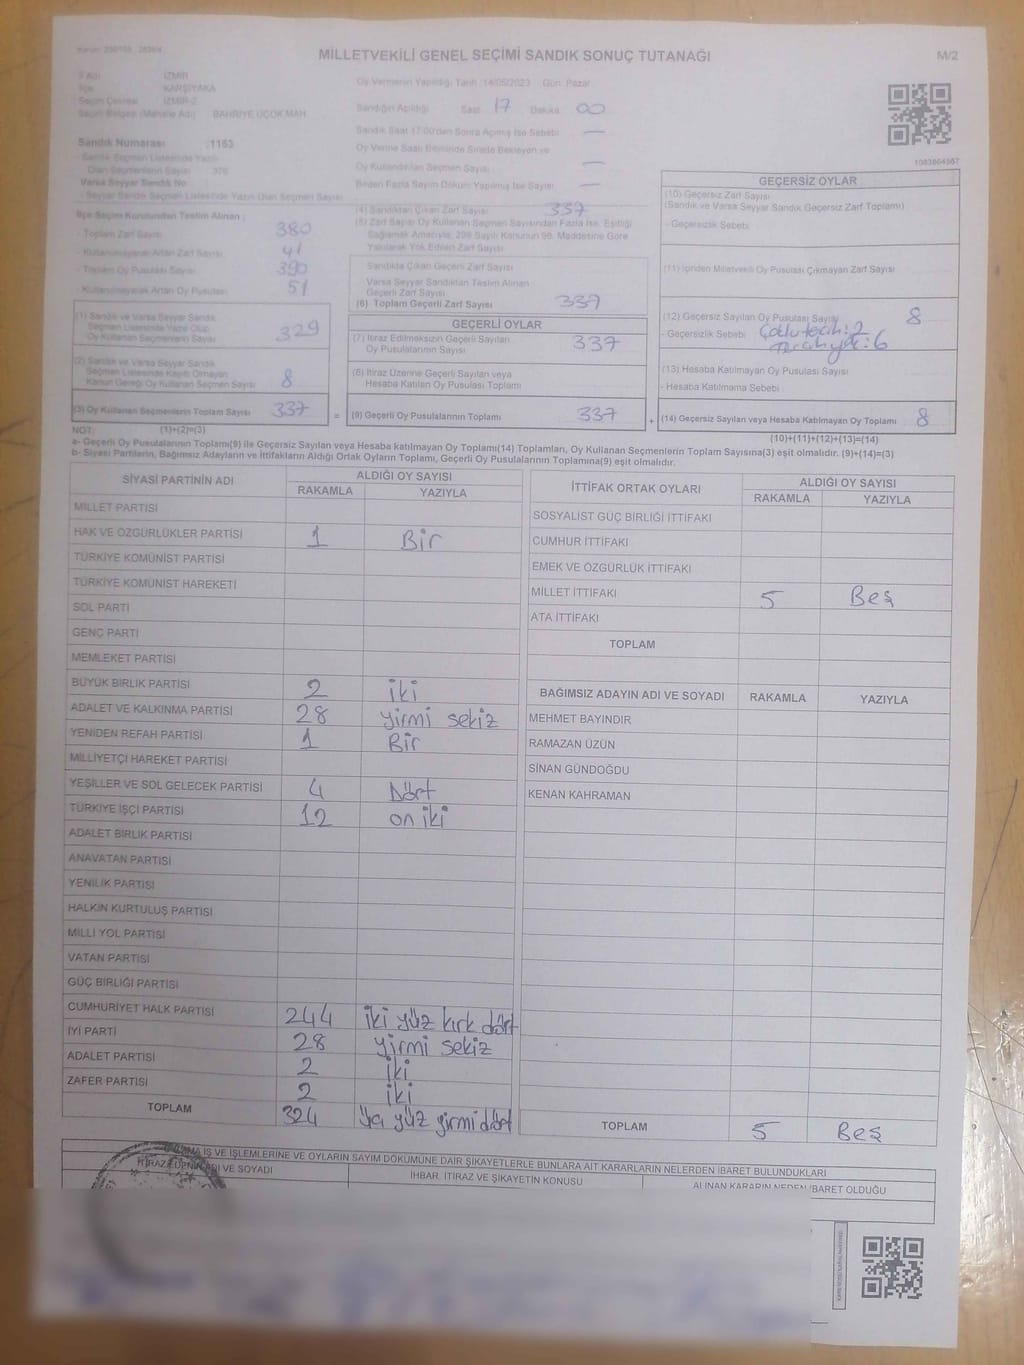 MİLLETVEKİLİ GENEL SEÇİMİ SANDIK SONUÇ TUTANAĞI
M/2
İl Adı İZMİR
İlçe KARŞIYAKA
Seçim Çevresi İZMİR-2
Seçim Bölgesi (Mahalle Adı) BAHRİYE ÜÇOK MAH.
Sandık Numarası :1153
- Sandık Seçmen Listesinde Yazılı
Olan Seçmenlerin Sayısı 376
Varsa Seyyar Sandık No
- Seyyar Sandık Seçmen Listesinde Yazılı Olan Seçmen Sayısı
Oy Vermenin Yapıldığı Tarih :14/05/2023 Gün: Pazar
Sandığın Açıldığı Saat 17 Dakika 00
Sandık Saat 17:00'dan Sonra Açılmış İse Sebebi —
Oy Verme Saati Bitiminde Sırada Bekleyen ve
Oy Kullandırılan Seçmen Sayısı —
Birden Fazla Sayım Döküm Yapılmış İse Sayısı —
İlçe Seçim Kurulundan Teslim Alınan :
- Toplam Zarf Sayısı 380
- Kullanılmayarak Artan Zarf Sayısı 41
- Toplam Oy Pusulası Sayısı 390
- Kullanılmayarak Artan Oy Pusulası 51
(1) Sandık ve Varsa Seyyar Sandık
Seçmen Listesinde Yazılı Olup
Oy Kullanan Seçmenlerin Sayısı 329
(2) Sandık ve Varsa Seyyar Sandık
Seçmen Listesinde Kayıtlı Olmayan
Kanun Gereği Oy Kullanan Seçmen Sayısı 8
(3) Oy Kullanan Seçmenlerin Toplam Sayısı 337
(4) Sandıktan Çıkan Zarf Sayısı 337
(5) Zarf Sayısı Oy Kullanan Seçmen Sayısından Fazla İse, Eşitliği
Sağlamak Amacıyla, 298 Sayılı Kanunun 98. Maddesine Göre
Yakılarak Yok Edilen Zarf Sayısı
Sandıkta Çıkan Geçerli Zarf Sayısı
Varsa Seyyar Sandıktan Teslim Alınan
Geçerli Zarf Sayısı
(6) Toplam Geçerli Zarf Sayısı 337
GEÇERLİ OYLAR
(7) İtiraz Edilmeksizin Geçerli Sayılan
Oy Pusulalarının Sayısı 337
(8) İtiraz Üzerine Geçerli Sayılan veya
Hesaba Katılan Oy Pusulası Toplamı
= (9) Geçerli Oy Pusulalarının Toplamı 337
1083864567
GEÇERSİZ OYLAR
(10) Geçersiz Zarf Sayısı
(Sandık ve Varsa Seyyar Sandık Geçersiz Zarf Toplamı)
- Geçersizlik Sebebi
(11) İçinden Milletvekili Oy Pusulası Çıkmayan Zarf Sayısı
(12) Geçersiz Sayılan Oy Pusulası Sayısı 8
- Geçersizlik Sebebi
(13) Hesaba Katılmayan Oy Pusulası Sayısı
- Hesaba Katılmama Sebebi
+ (14) Geçersiz Sayılan veya Hesaba Katılmayan Oy Toplamı 8
NOT: (1)+(2)=(3)
(10)+(11)+(12)+(13)=(14)
a- Geçerli Oy Pusulalarının Toplamı(9) ile Geçersiz Sayılan veya Hesaba Katılmayan Oy Toplamı(14) Toplamları, Oy Kullanan Seçmenlerin Toplam Sayısına(3) eşit olmalıdır. (9)+(14)=(3)
b- Siyasi Partilerin, Bağımsız Adayların ve İttifakların Aldığı Ortak Oyların Toplamı, Geçerli Oy Pusulalarının Toplamına(9) eşit olmalıdır.
SİYASİ PARTİNİN ADI
ALDIĞI OY SAYISI
RAKAMLA YAZIYLA
MİLLET PARTİSİ
HAK VE ÖZGÜRLÜKLER PARTİSİ 1 Bir
TÜRKİYE KOMÜNİST PARTİSİ
TÜRKİYE KOMÜNİST HAREKETİ
SOL PARTİ
GENÇ PARTİ
MEMLEKET PARTİSİ
BÜYÜK BİRLİK PARTİSİ 2 iki
ADALET VE KALKINMA PARTİSİ 28 yirmi sekiz
YENİDEN REFAH PARTİSİ 1 Bir
MİLLİYETÇİ HAREKET PARTİSİ
YEŞİLLER VE SOL GELECEK PARTİSİ 4 Dört
TÜRKİYE İŞÇİ PARTİSİ 12 on iki
ADALET BİRLİK PARTİSİ
ANAVATAN PARTİSİ
YENİLİK PARTİSİ
HALKIN KURTULUŞ PARTİSİ
MİLLİ YOL PARTİSİ
VATAN PARTİSİ
GÜÇ BİRLİĞİ PARTİSİ
CUMHURİYET HALK PARTİSİ 244 iki yüz kırk dört
İYİ PARTİ 28 yirmi sekiz
ADALET PARTİSİ 2 iki
ZAFER PARTİSİ 2 iki
TOPLAM 324 yüz yirmi dört
İTTİFAK ORTAK OYLARI
ALDIĞI OY SAYISI
RAKAMLA YAZIYLA
SOSYALİST GÜÇ BİRLİĞİ İTTİFAKI
CUMHUR İTTİFAKI
EMEK VE ÖZGÜRLÜK İTTİFAKI
MİLLET İTTİFAKI 5 Beş
ATA İTTİFAKI
TOPLAM
BAĞIMSIZ ADAYIN ADI VE SOYADI RAKAMLA YAZIYLA
MEHMET BAYINDIR
RAMAZAN ÜZÜN
SİNAN GÜNDOĞDU
KENAN KAHRAMAN
TOPLAM 5 Beş
İŞ VE İŞLEMLERİNE VE OYLARIN SAYIM DÖKÜMÜNE DAİR ŞİKAYETLERLE BUNLARA AİT KARARLARIN NELERDEN İBARET BULUNDUKLARI
İTİRAZ EDENİN ADI VE SOYADI
İHBAR, İTİRAZ VE ŞİKAYETİN KONUSU
ALINAN KARARIN NEDEN İBARET OLDUĞU